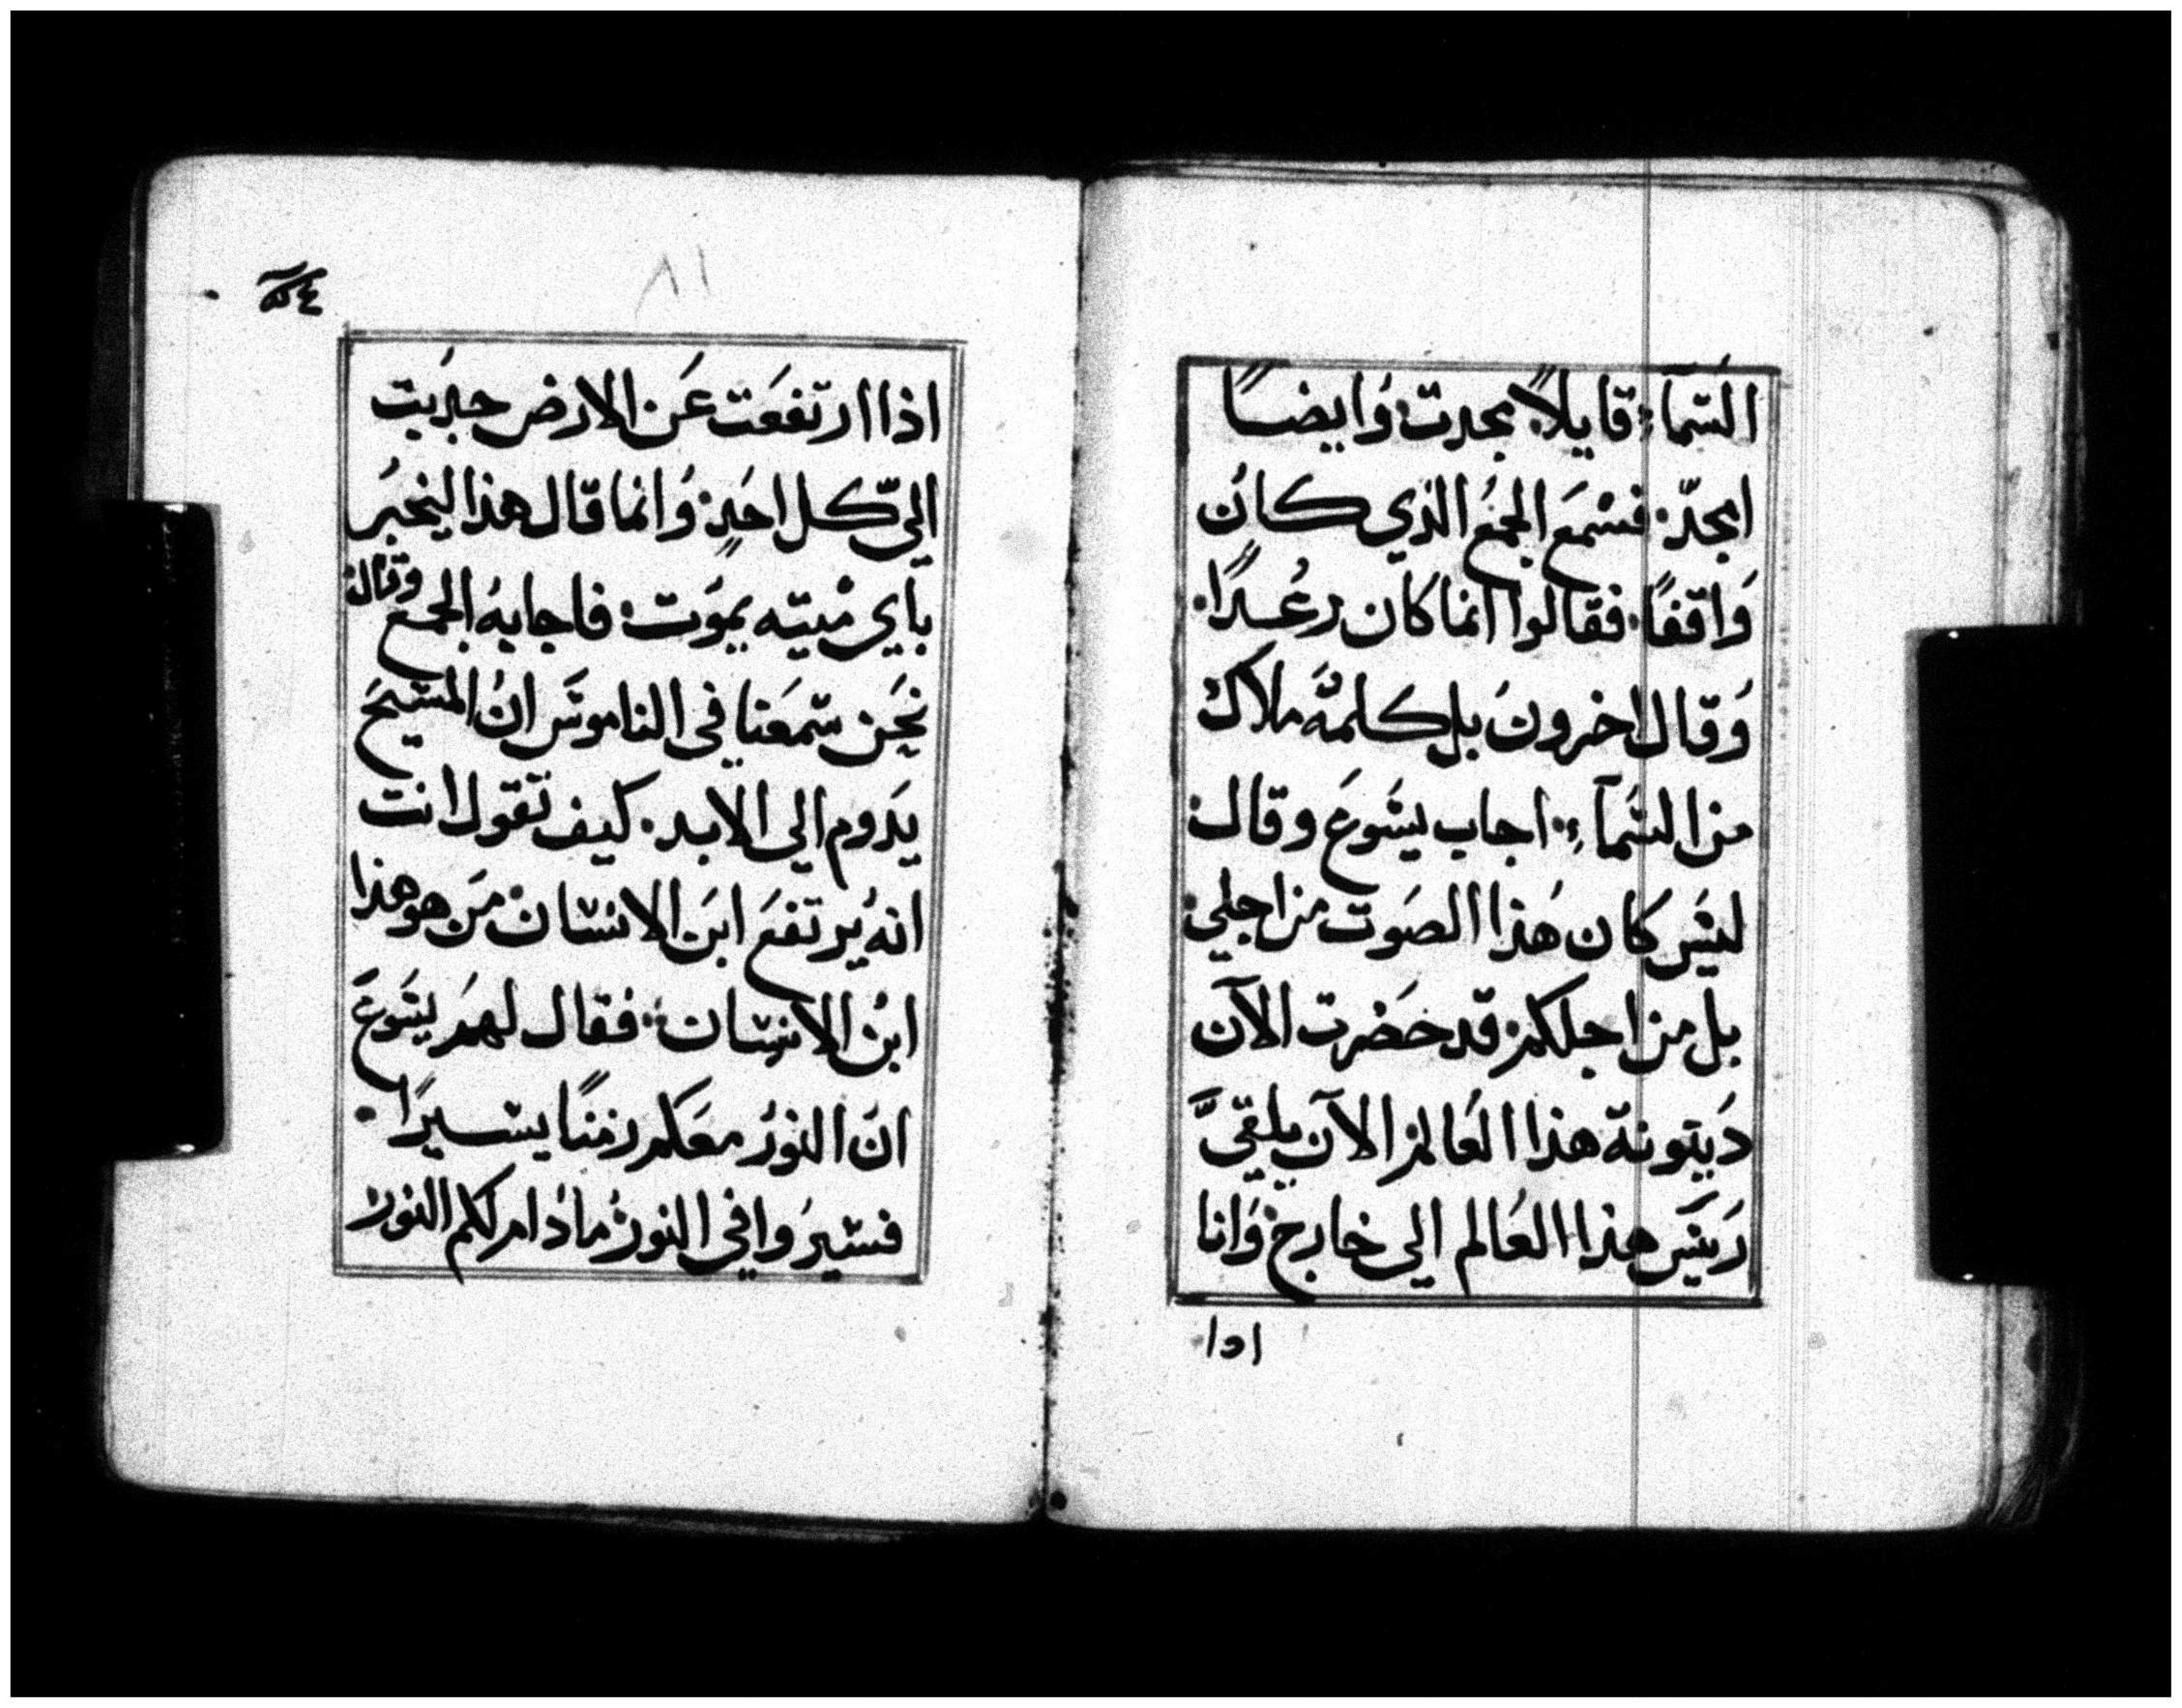 السَمآء: قايلاً: مجدت وَايضاً
امجدّ: فسْمعَ الجمَع الذي كانَ
وَاقفاً: فقالوا انما كان رعُداً.
وَقال اخرونَ بل كلمهُ ملاك
من السَمآء: اجاب يسَوعَ وقال:
ليسَ كان هَذا الصَوت من اجلي:
بل من اجلكم: قد حَضرت الآن
دَينونة هذا العَالم: الآن يلقىَ
رَييَس هذا العَالم الي خارج: وَانا
اذا
٨١
اذا ارتفعَت عَن الارض جدبَت
اليّ كل احَدٍ: وَانما قال هذا ليخبرُ
باي ميته يموَت: فاجابهُ الجمع وقال:
نحَن سَمعَنا في الناموسَ انَ المسَيحَ
يدَوم الي الابد: كيف تقول انت
انهُ يرتفعَ ابنَ الانسَان: مَن هو هذا
ابنُ الانسَان: فقال لهمَ يسَوعَ
انَ النورُ معَكم زمنَاً يسَيراً.
فسَيرَوا في النورُ ما دَام لكم النور